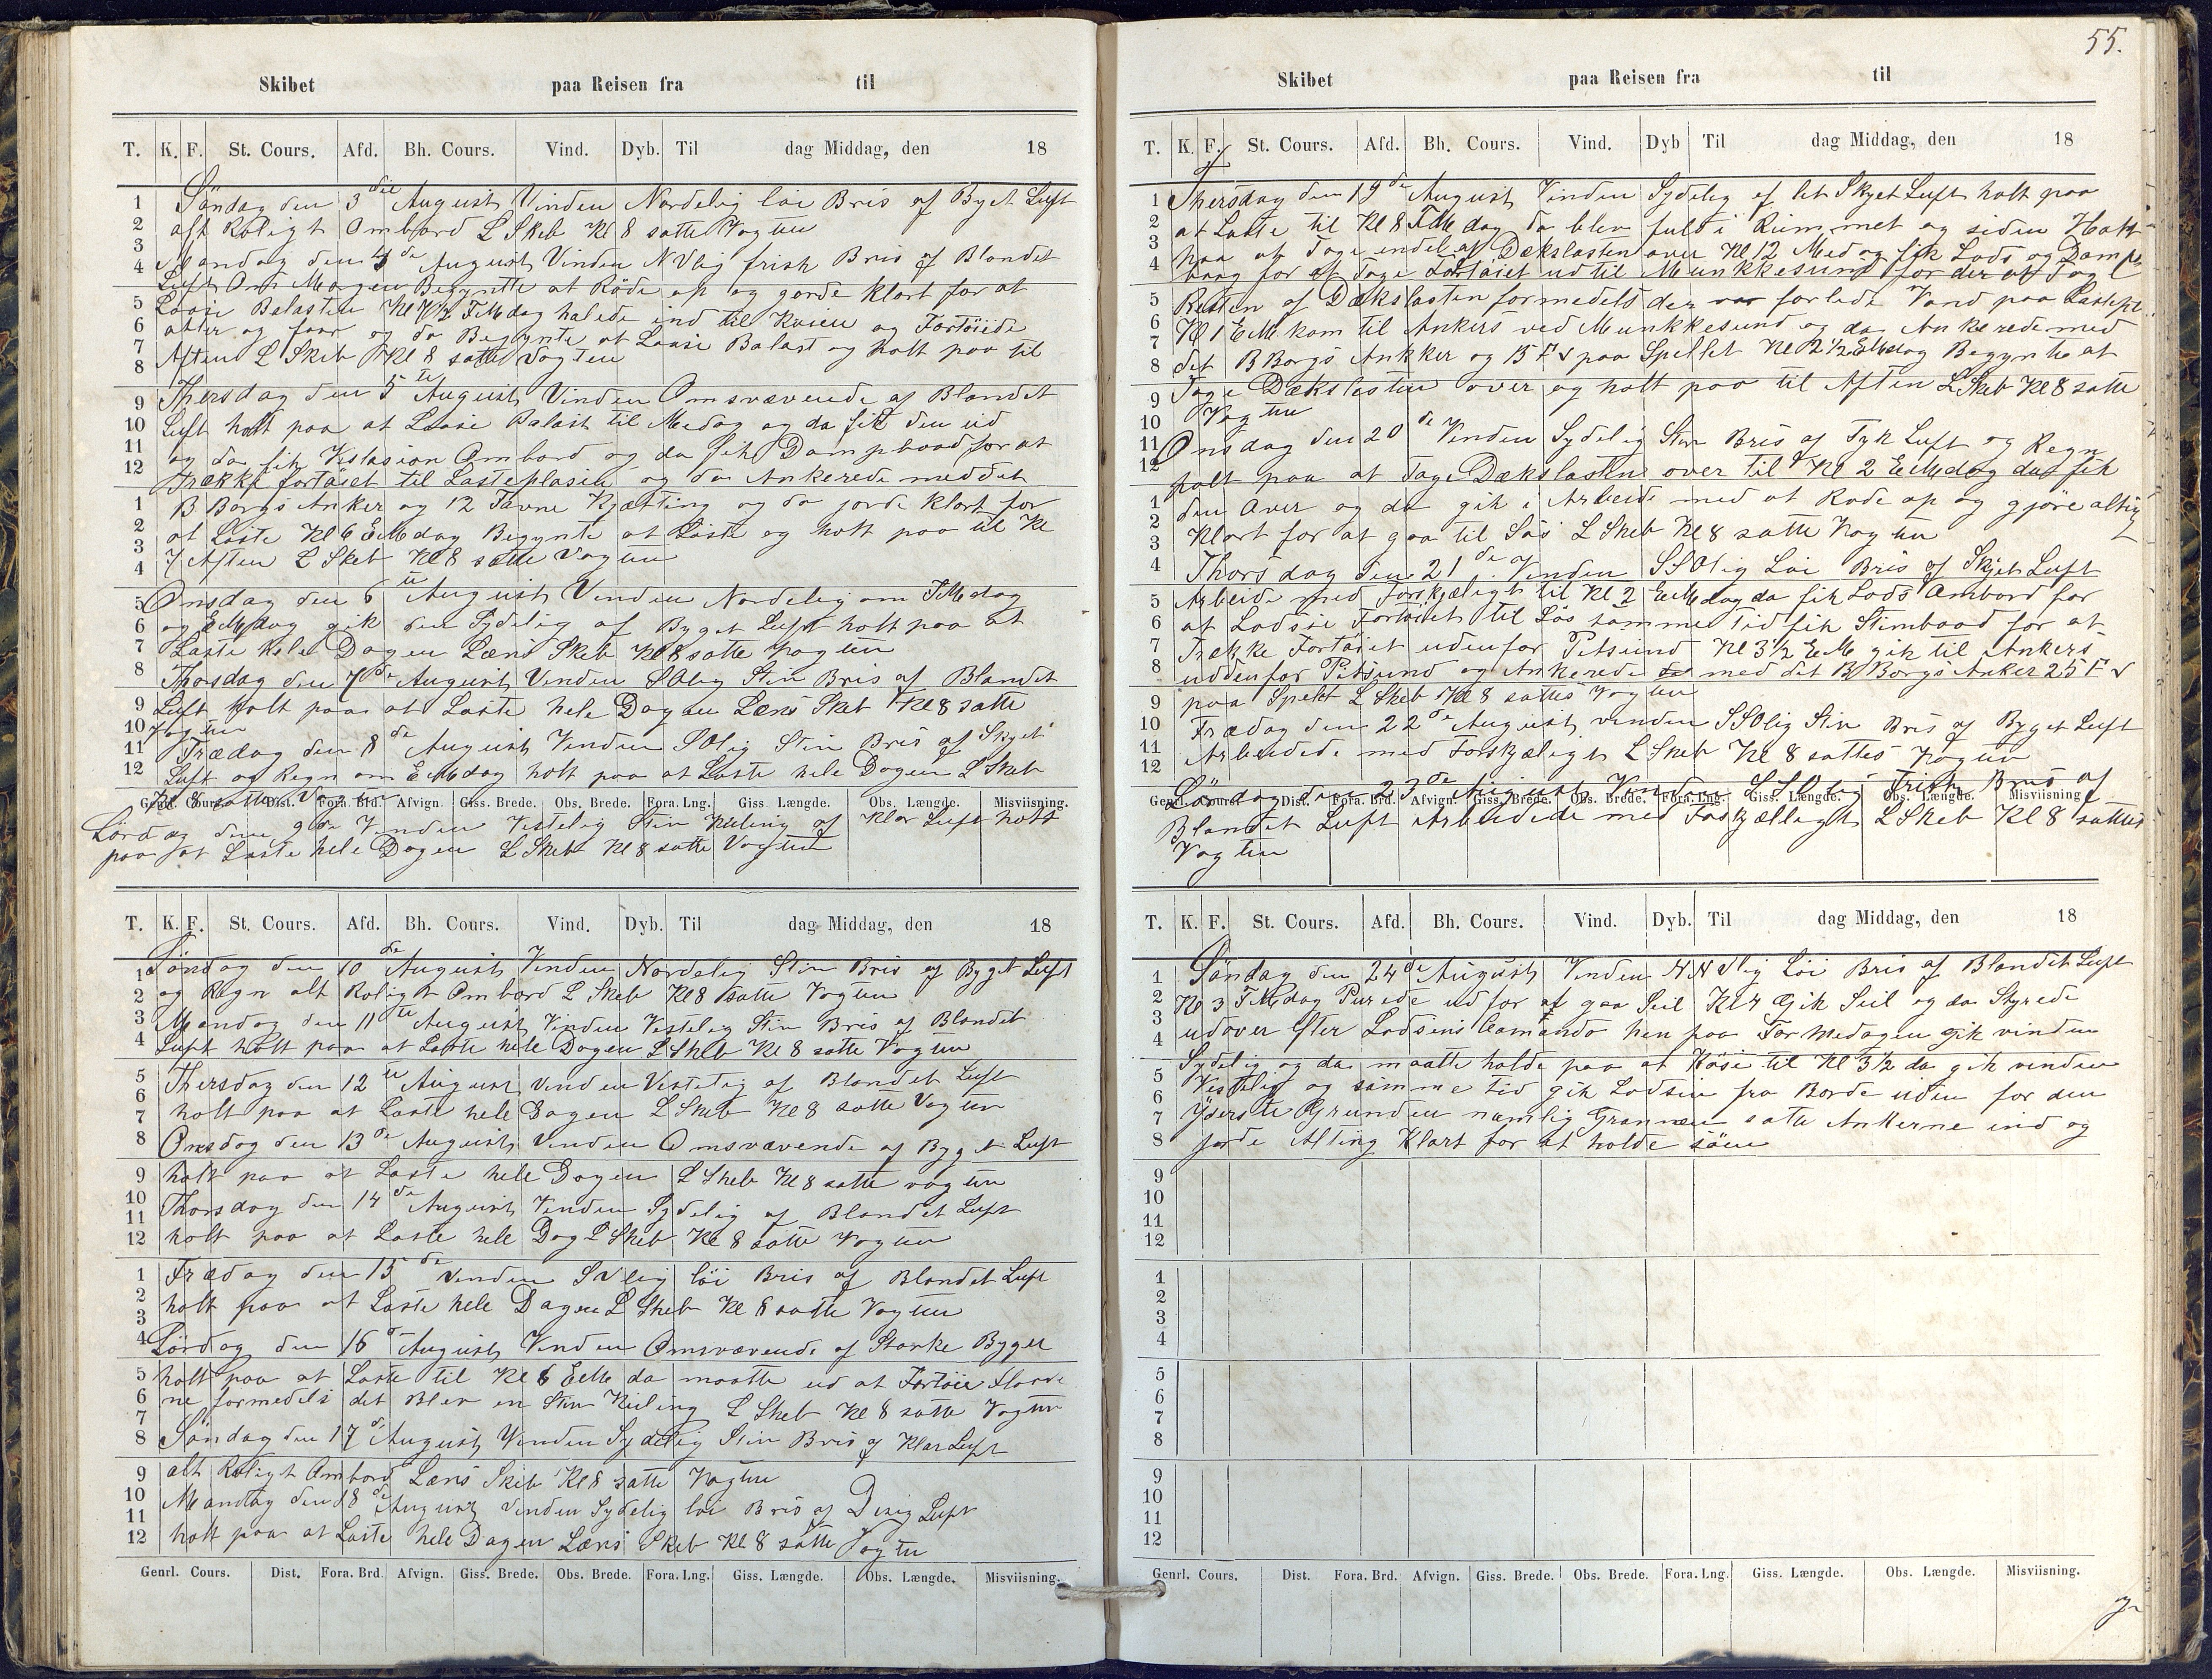 Skibet paa Reisen fra til
T. K. F. St. Cours. Afd. Bh. Cours. Vind. Dyb. Til dag Middag, den 18
Söndag den 3die August Vinden Nordelig löi Bris af Byet Luft
alt Roligt Ombord L Skeb Kl 8 satte Vogten
Mandag den 4de August Vinden NVlig frisk Bris af Blandet
Luft Om Morgen Begynte at Röde op og gorde klart for at
Losse Balasten Kl 7½ FMdag halede ind til Kaien og Fortöiede
akter og foor og da Begynte at Losse Balast og holt paa til
Aften L Skeb Kl 8 satte Vogten
Thersdag den 5te August Vinden Omsvævende af Blandet
Luft holt paa at Losse Balast til Medag og da fik den ud
og da fik Ombord og da fik Dampbaad for at
Trække fortöiet til Lasteplasen og da Ankerede med det
B Borgs Anker og 12 Favne Kjætting og da jorde klart for
at Laste Kl 6 EMdag Begynte at Laste og holt paa til Kl
7 Aften L Skeb Kl 8 satte Vogten
Onsdag den 6te August Vinden Nordelig om FMdag
og EMdag gik den Sydelig af Byget Luft holt paa at
Laste hele Dagen Læns Skeb Kl 8 satte Vogten
Thosdag den 7de August Vinden SOlig Stiv Bris af Blandet
Luft holt paa at Laste hele Dagen Læns Skeb Kl 8 satte
Vogten
Frædag den 8de August Vinden SOlig Stiv Bris af Skyet
Luft og Regn om EMdag holt paa at Laste hele Dagen L Skeb
Kl 8 satte Vogten
Genrl. Cours. Dist. Fora. Brd. Afvign. Giss. Brede. Obs. Brede. Fora. Lng. Giss. Længde. Obs. Længde. Misviisning.
Lördag den 9de Vinden Vestelig Stiv Kuling af Klar Luft holt
paa at Laste hele Dagen L Skeb Kl 8 satte Vogten
T. K. F. St. Cours. Afd. Bh. Cours. Vind. Dyb. Til dag Middag, den 18
Söndag den 10de August Vinden Nordelig Stiv Bris af Byget Luft
og Regn alt Roligt Ombord L Skeb Kl 8 satte Vogten
Mandag den 11te August Vinden Vestelig Stiv Bris af Blandet
Luft holt paa at Laste hele Dagen L Skeb Kl 8 satte Vogten
Thersdag den 12te August Vinden Vestelig af Blandet Luft
holt paa at Laste hele Dagen L Skeb Kl 8 satte Vogten
Onsdag den 13de August Vinden Omsvævende af Byget Luft
holt paa at Laste hele Dagen L Skeb Kl 8 satte vogten
Thorsdag den 14de August Vinden Sydelig af Blandet Luft
holt paa at Laste hele Dag L Skeb Kl 8 satte Vogten
Frædag den 15de Vinden SVlig löi Bris af Blandet Luft
holt paa at Laste hele Dagen L Skeb Kl 8 satte Vogten
Lördag den 16de August Vinden Omsvævende af Starke Byger
holt paa at Laste til Kl 6 EM da maatte ud at Fortöie Flaade
ne formedels det Blev en Stiv Kuling L Skeb Kl 8 satte Vogten
Söndag den 17de August Vinden Sydelig Stiv Bris af Klar Luft
alt Roligt Ombord Læns Skeb Kl 8 satte Vogten
Mandag den 18de August Vinden Sydelig löi Bris af Disig Luft
holt paa at Laste hele Dagen Læns Skeb Kl 8 satte Vogten
Genrl. Cours. Dist. Fora. Brd. Afvign. Giss. Brede. Obs. Brede. Fora. Lng. Giss. Længde. Obs. Længde. Misviisning.
55.
Skibet paa Reisen fra til
T. K. F. St. Cours. Afd. Bh. Cours. Vind. Dyb Til dag Middag, den 18
Thersdag den 19de August Vinden Sydelig af let Skyet Luft holt paa
at Laste til Kl 8 FMdag da blev fuld i Rummet og siden Holt
paa at Tage endel af Dækslasten over Kl 12 Medag fik Lods og Damp
baag for at Tage Fortöiet ud til Munkkesund for der at Tag
Resten af Dækslasten formedels der var forlide Vand paa
Kl 1 EM kom til Ankers ved Munkkesund og da Ankerede med
det B Borgs Ankker og 15 Fv paa Spellet Kl 2½ EMdag Begynte at
Tage Dækslasten over og holt paa til Aften L Skeb Kl 8 satte
Vogten
Onsdag den 20de Vinden Sydelig Stiv Bris af Tyk Luft og Regn
holt paa at Tage Dækslasten over til Kl 2 EMdag da fik
den Over og da gik i Arbeide med at Rode op og gjöre alting
Klart for at gaa til Söes L Skeb Kl 8 satte Vogten
Thorsdag den 21de Vinden SSOlig Löi Bris af Skyet Luft
Arbeide med Forskjæligt til Kl 2 EMdag da fik Lods Ombord for
at Lodsie Fortöiet til Söes samme tid fik Stimbaad for at
Trække Fortöiet udenfor Pitsund Kl 3½ EM gik til Ankers
uddenfor Pitsund og Ankerede med det B Borgs Anker 25 Fv
paa Spelet L Skeb Kl 8 sattes Vogten
Frædag den 22de August vinden SSOlig Stiv Bris af Byget Luft
Arbeidede med Forskjæligt L Skeb Kl 8 sattes Vogten
Lördag den 23de August Vinden SSOlig Frisk Bris af
Genrl. Cours. Dist. Fora. Brd. Afvign. Giss. Brede. Obs. Brede. Fora. Lng. Giss. Længde. Obs. Længde. Misviisning
Blandet Luft Arbeidede med Foskjælligt L Skeb Kl 8 sattes
Vogten
T. K. F. St. Cours. Afd. Bh. Cours. Vind. Dyb. Til dag Middag, den 18
Söndag den 24de August Vinden NNVlig Löi Bris af Blandet Luft
Kl 3 FMdag Purede ud for at gaa Seil Kl 4 Gik Seil og da Styrede
udover Efter Lodsens Comando hen paa For Medagen Gik vinden
Sydelig og da maatte holde paa at Köse til Kl 3½ da gik vinden
Vestelig og samme tid gik Lodsen fra Borde uden for den
Yderste Grunden namlig satte Ankerne ind og
jorde Alting Klart for at holde söen
Genrl. Cours. Dist. Fora. Brd. Afvign. Giss. Brede. Obs. Brede. Fora. Lng. Giss. Længde. Obs. Længde. Misviisning.